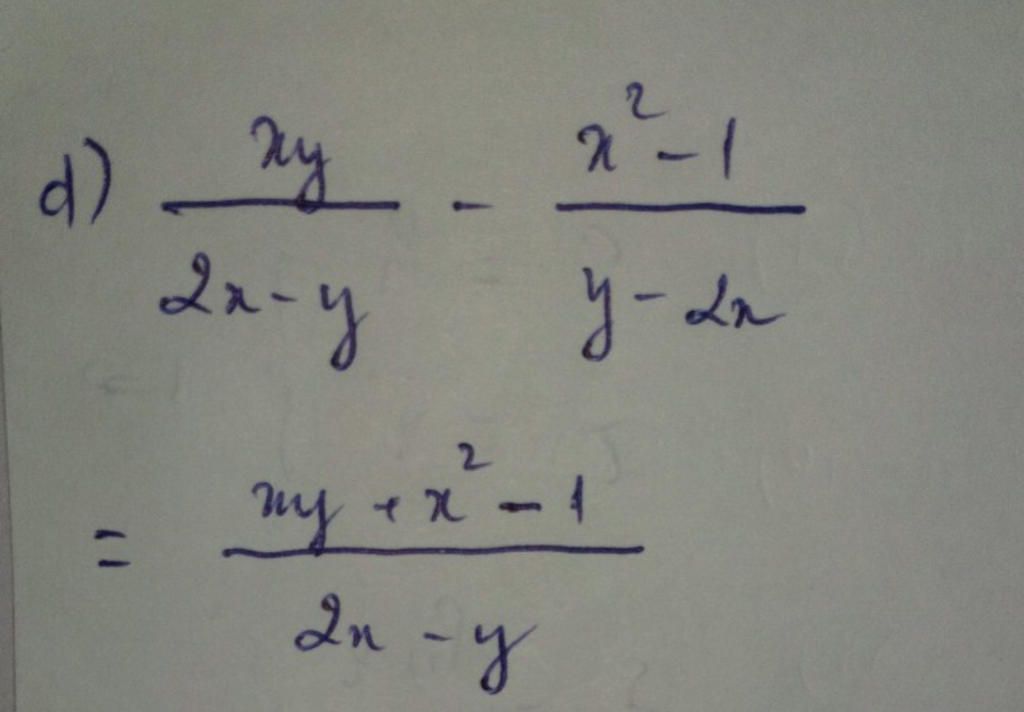 d) xy / 2x - y - x² - 1 / y - 2x
= xy + x² - 1 / 2x - y